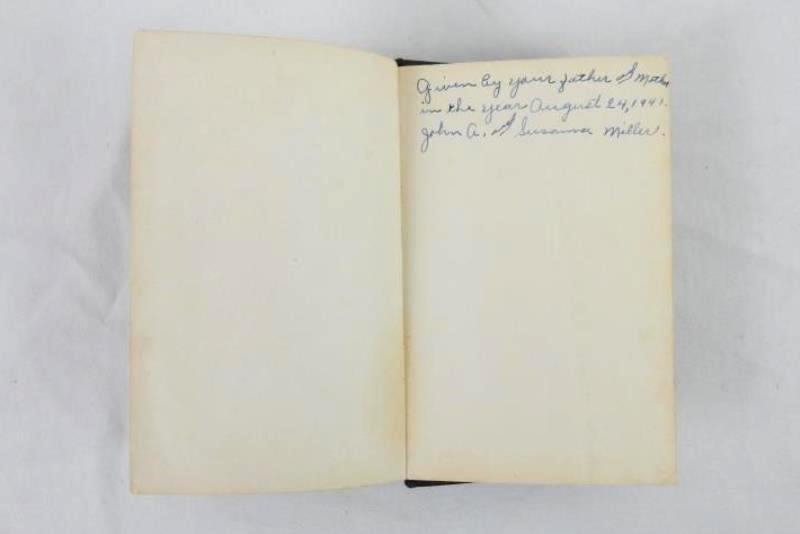 Given by your father and Mother
in the year August 24, 1941.
John A. and Susanna Miller.